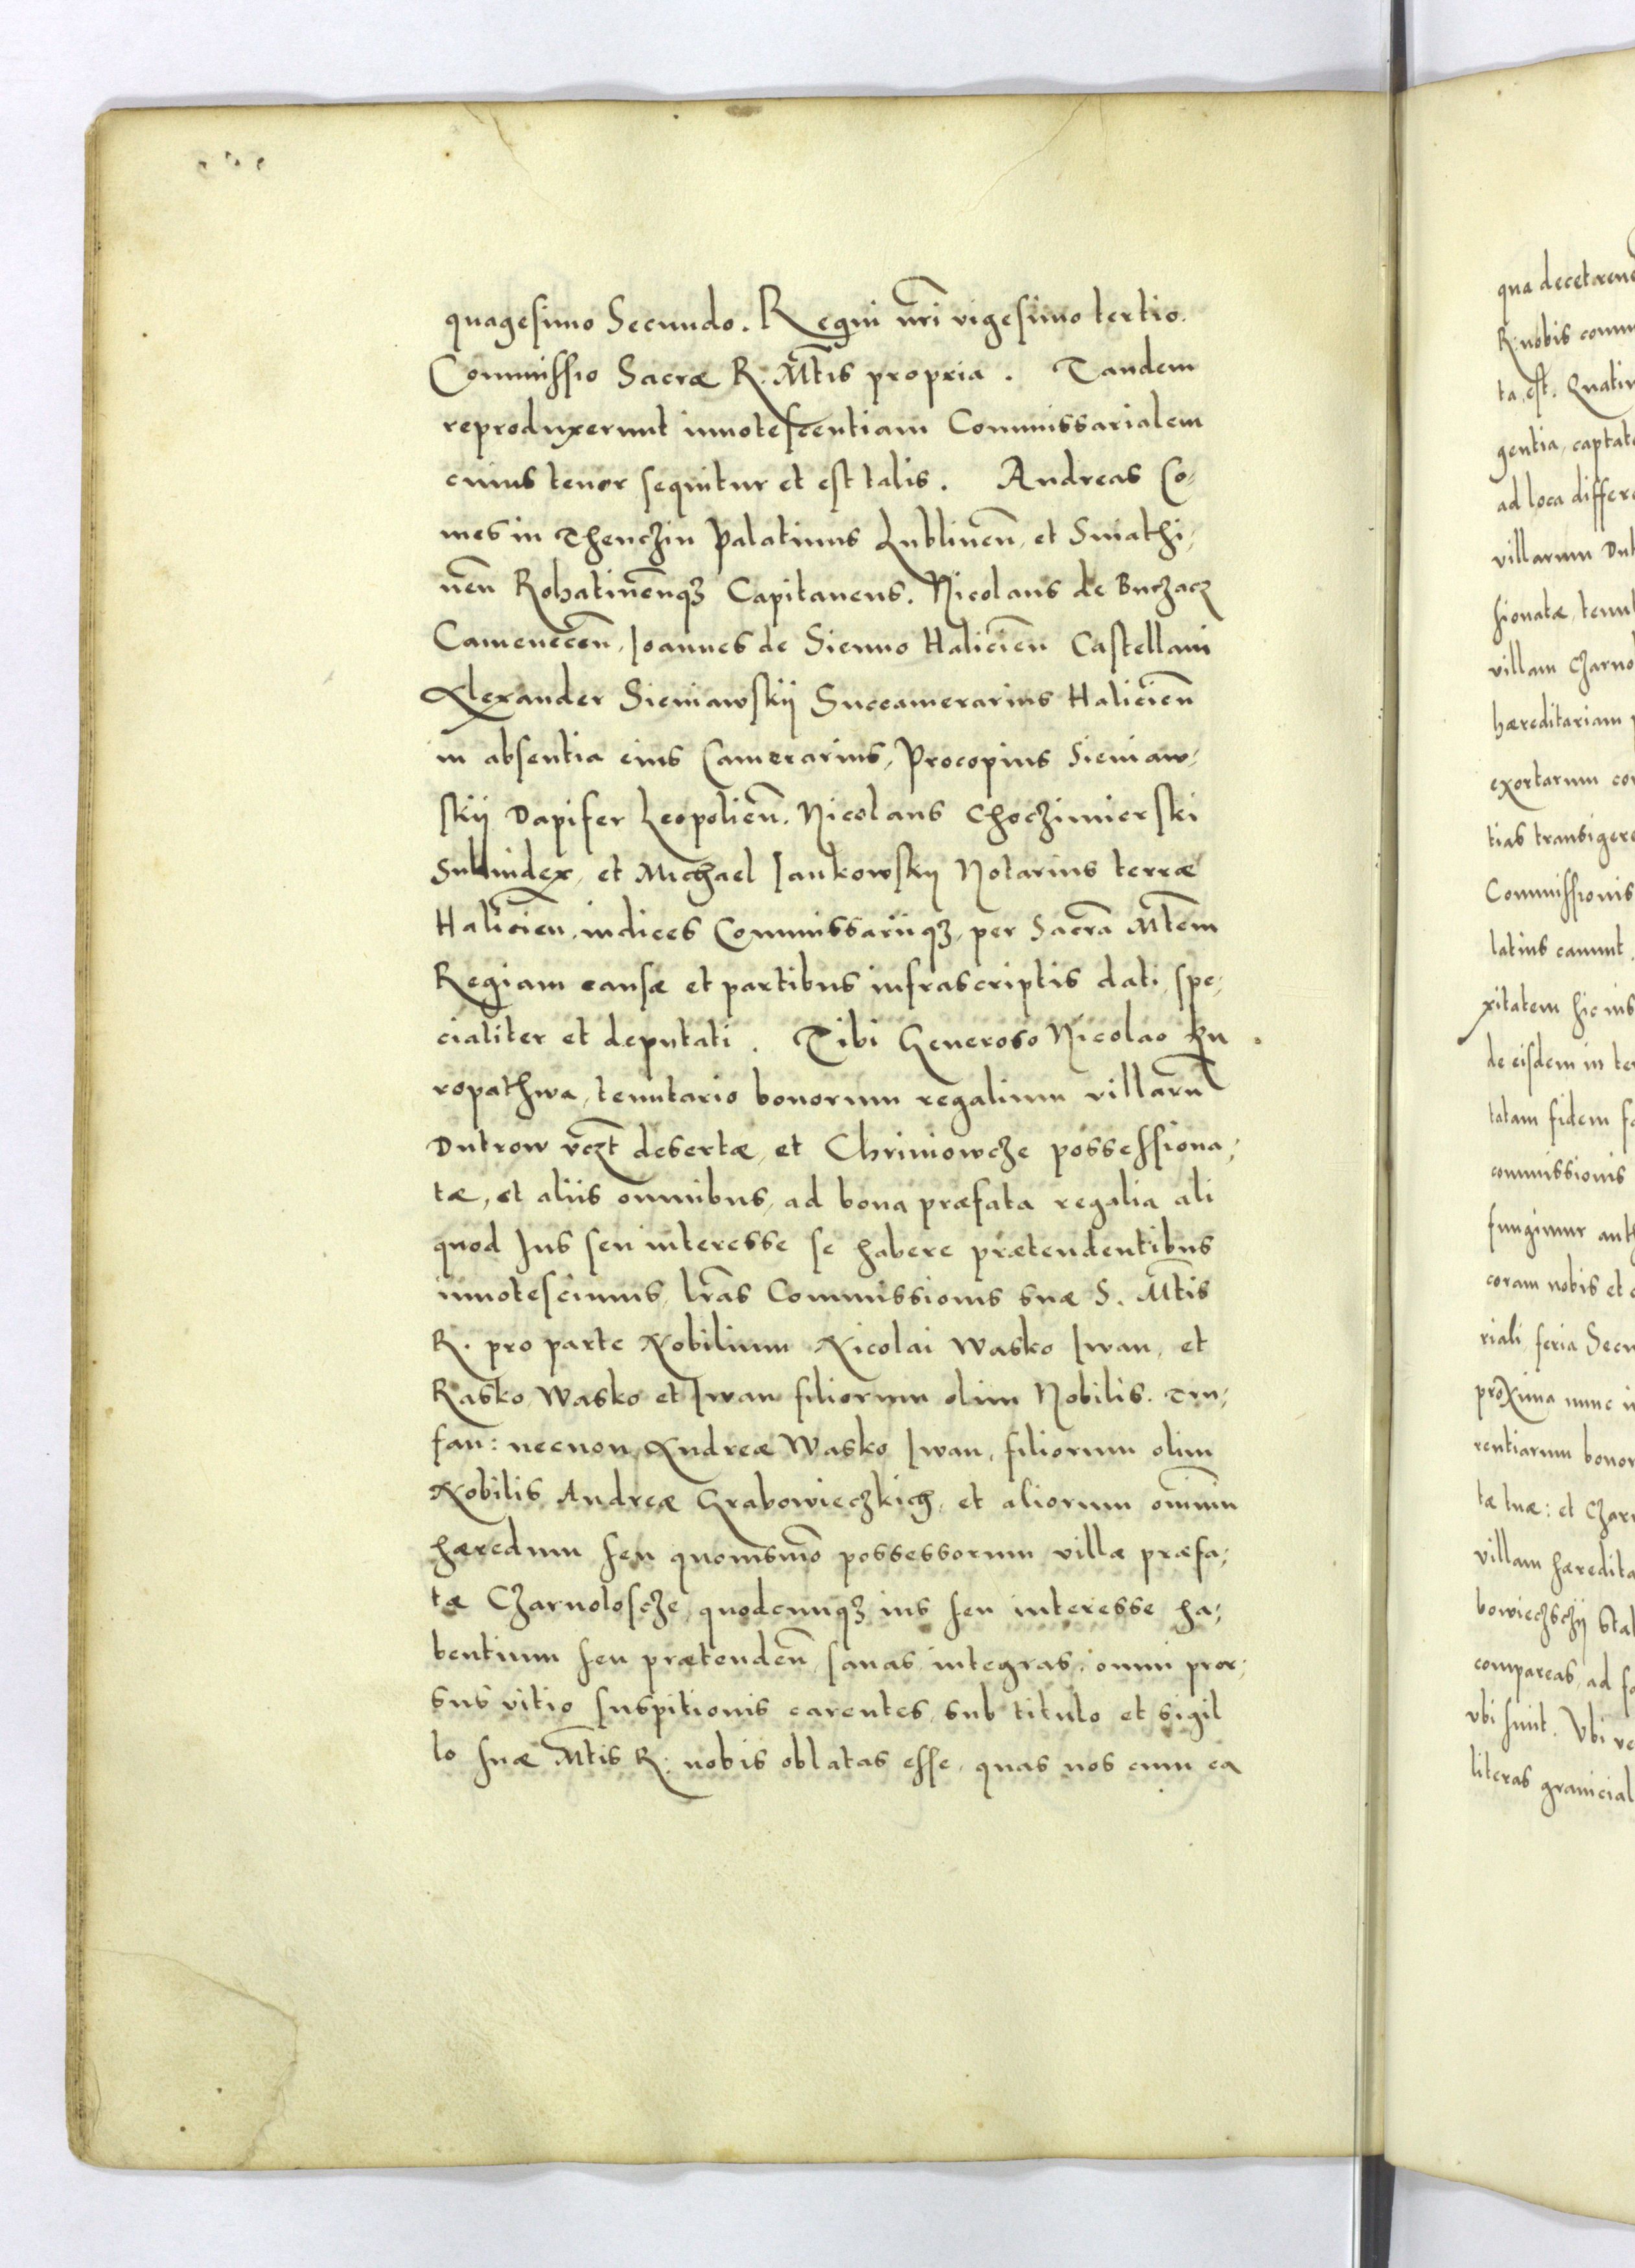 quagesimo Secundo. Regni nr̃i vigesimo tertio.
Commissio Sacræ R. Mt̃is propria. Tandem
reproduxerunt innotescentiam Commissarialem
cuius tenor sequitur et est talis. Andreas Co-
mes in Thenczin Palatinus Lublineñ, et Sniathi-
neñ Rohatineñqꝫ Capitaneus. Nicolaus de Buczacz
Cameneceñ, Ioannes de Sienno Halicieñ Castellani
Alexander Sieniawskij Succamerarius Halicieñ
in absentia eius Camerarius, Procopius Sieniaw-
skij Dapifer Leopolieñ. Nicolaus Choczimierski
Subiudex, et Michael Iankowskij Notarius terræ
Halicieñ, iudices Commissarijqꝫ, per Sacrã Mt̃em
Regiam causæ et partibus infrascriptis dati, spe-
cialiter et deputati. Tibi Generoso Nicolao Ku
ropathwa, tenutario bonorum regalium villarũ
Dutrow vcz̃t desertæ, et Chriniowcze possessiona-
tæ, et aliis omnibus, ad bona præfata regalia ali
quod Ius seu interesse se habere prætendentibus
innotescimus, lr̃as Commissionis suæ S. Mt̃is
R. pro parte Nobilium Nicolai Wasko Iwan, et
Rasko, Wasko et Iwan filiorum olim Nobilis. Tru-
fan: necnon Andreæ Wasko Iwan, filiorum olim
Nobilis Andreæ Grabowieczkich, et aliorum om̃ium
hæredum seu quomsmõ possessorum villæ præfa-
tæ Czarnoloscze, quodcunqꝫ ius seu interesse ha-
bentium seu prætendeñ, sanas integras, omni pror-
sus vitio suspitionis carentes, sub titulo et sigil
lo suæ Mt̃is R: nobis oblatas esse, quas nos cum ea
qua decet
R: nobis
ta, est.
gentia, captat
ad loca
villarum
sionatæ,
villam
hæreditariam
exortarum
tias
Commissionis
latius canunt.
xitatem hic
de eisdem in
tatam fidem
commissionis
fungimur
coram nobis et
riali feria
proxima nunc
rentiarum
tæ tuæ: et
villam
compareas, ad
vbi sunt. Vbi
literas